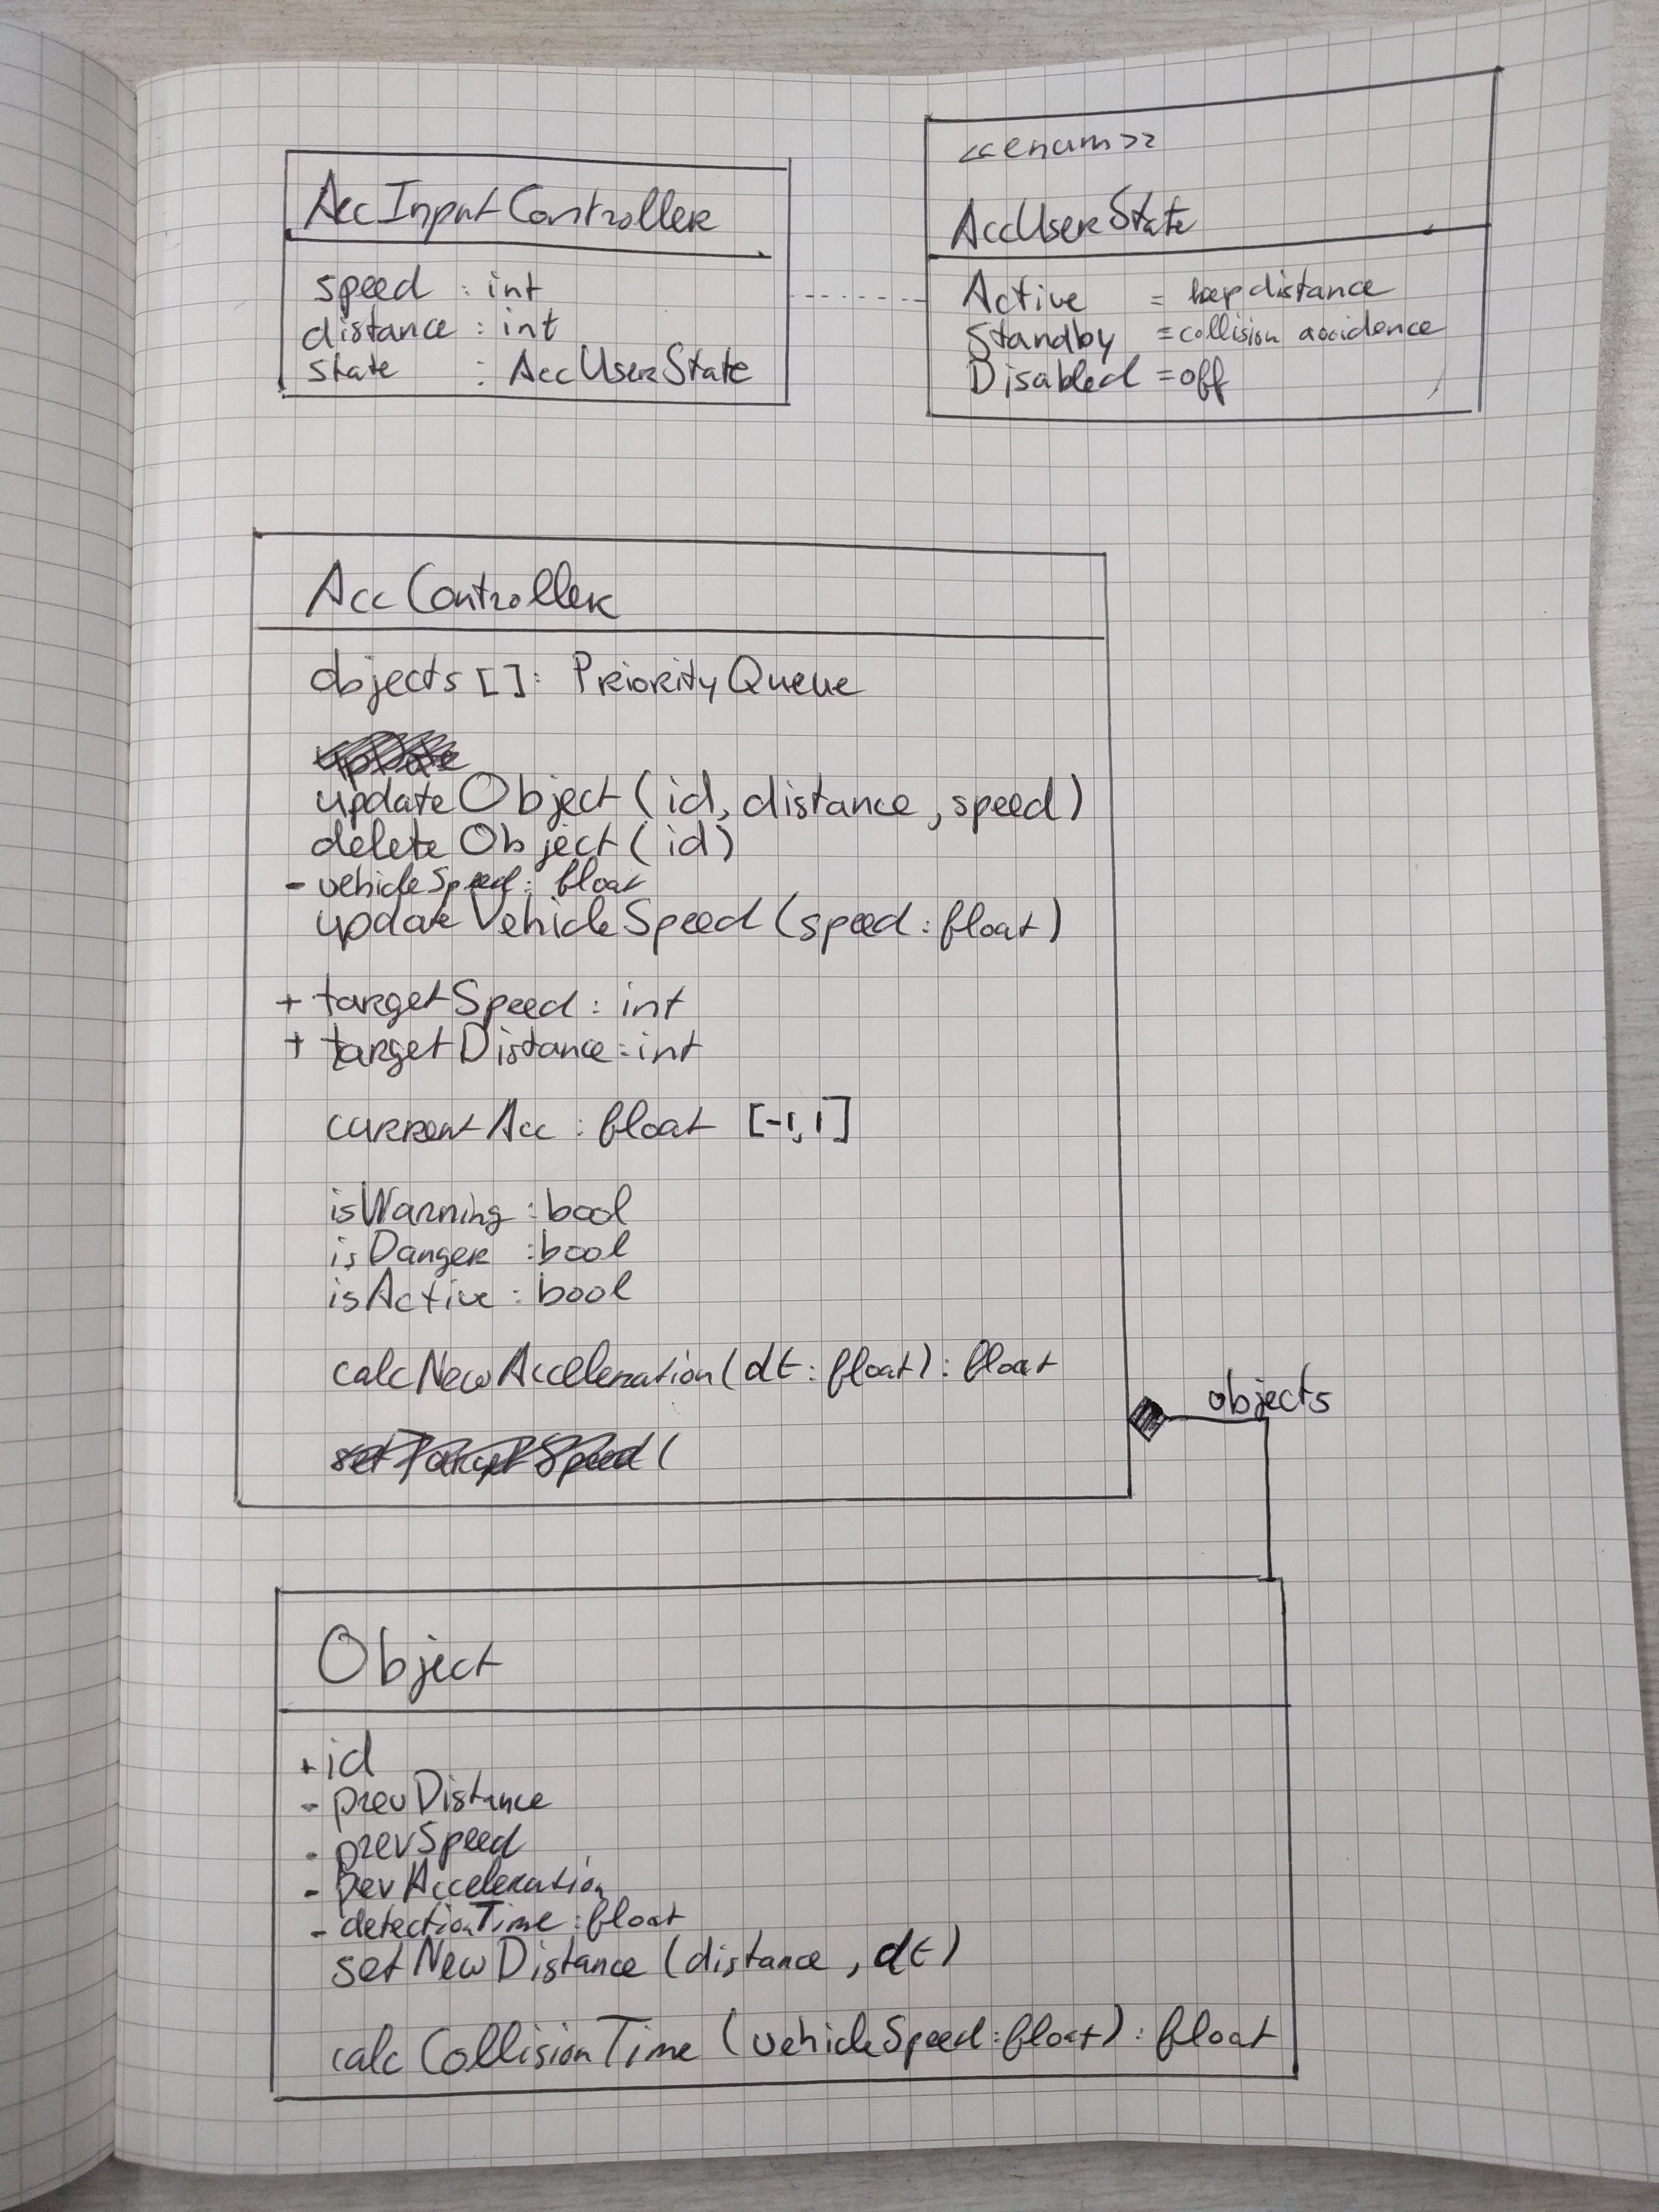 AccInputController
speed : int
distance : int
state : AccUserState
<<enum>>
AccUserState
Active = keep distance
Standby = collision avoidence
Disabled = off
AccController
objects []: PriorityQueue
update
updateObject(id, distance, speed)
deleteObject(id)
- vehicleSpeed: float
updateVehicleSpeed(speed: float)
+ targetSpeed: int
+ targetDistance: int
currentAcc : float [-1,1]
isWarning : bool
isDanger : bool
isActive : bool
calcNewAcceleration(dt: float): float
setTargetSpeed(
objects
Object
+ id
- prevDistance
- prevSpeed
- pevAcceleration
- detectionTime: float
setNewDistance (distance, dt)
calcCollisionTime (vehicleSpeed: float): float